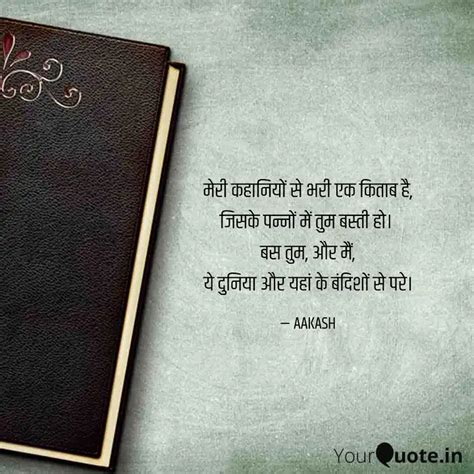 मेरी कहानियों से भरी एक किताब है,
जिसके पन्नों में तुम बस्ती हो।
बस तुम, और मैं,
ये दुनिया और यहां के बंदिशों से परे।
– AAKASH
YourQuote.in